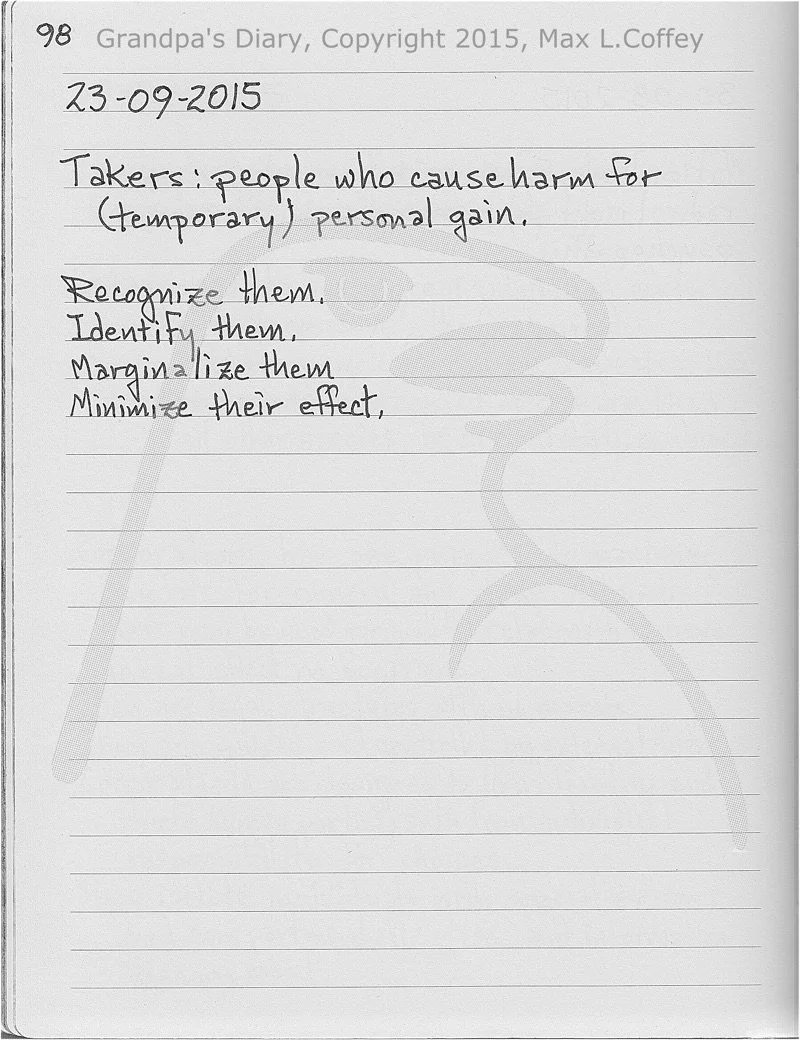 98 Grandpa's Diary, Copyright 2015, Max L.Coffey
23-09-2015
Takers: people who cause harm for
(temporary) personal gain.
Recognize them.
Identify them.
Marginalize them
Minimize their effect.